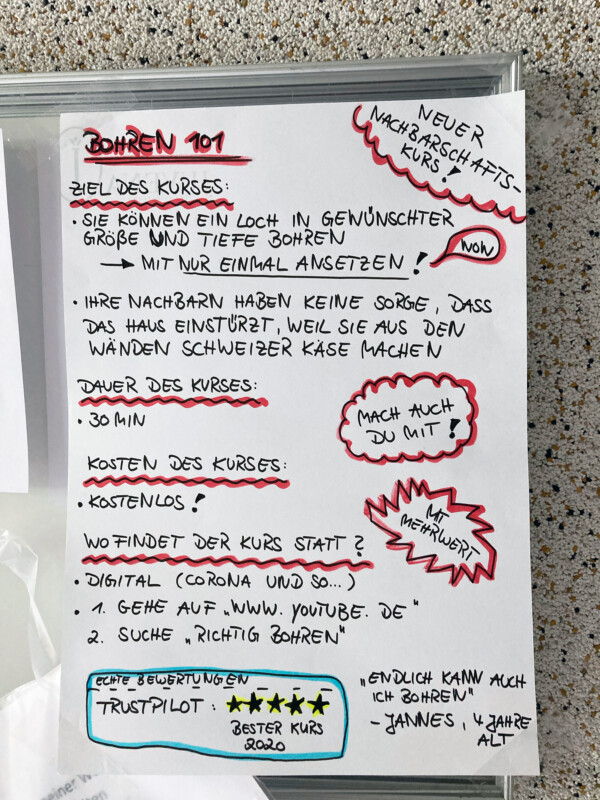 BOHREN 101
NEUER
NACHBARSCHAFTS-
KURS!
ZIEL DES KURSES:
• SIE KÖNNEN EIN LOCH IN GEWÜNSCHTER
GRÖßE UND TIEFE BOHREN
→ MIT NUR EINMAL ANSETZEN!
WOW
• IHRE NACHBARN HABEN KEINE SORGE, DASS
DAS HAUS EINSTÜRZT, WEIL SIE AUS DEN
WÄNDEN SCHWEIZER KÄSE MACHEN
DAUER DES KURSES:
• 30 MIN
MACH AUCH
DU MIT!
KOSTEN DES KURSES:
• KOSTENLOS!
MIT
MEHRWERT
WO FINDET DER KURS STATT?
• DIGITAL (CORONA UND SO...)
• 1. GEHE AUF „WWW. YOUTUBE. DE"
2. SUCHE „RICHTIG BOHREN"
ECHTE BEWERTUNGEN
TRUSTPILOT : ★★★★★
BESTER KURS
2020
„ENDLICH KANN AUCH
ICH BOHREN"
- JANNES, 4 JAHRE
ALT